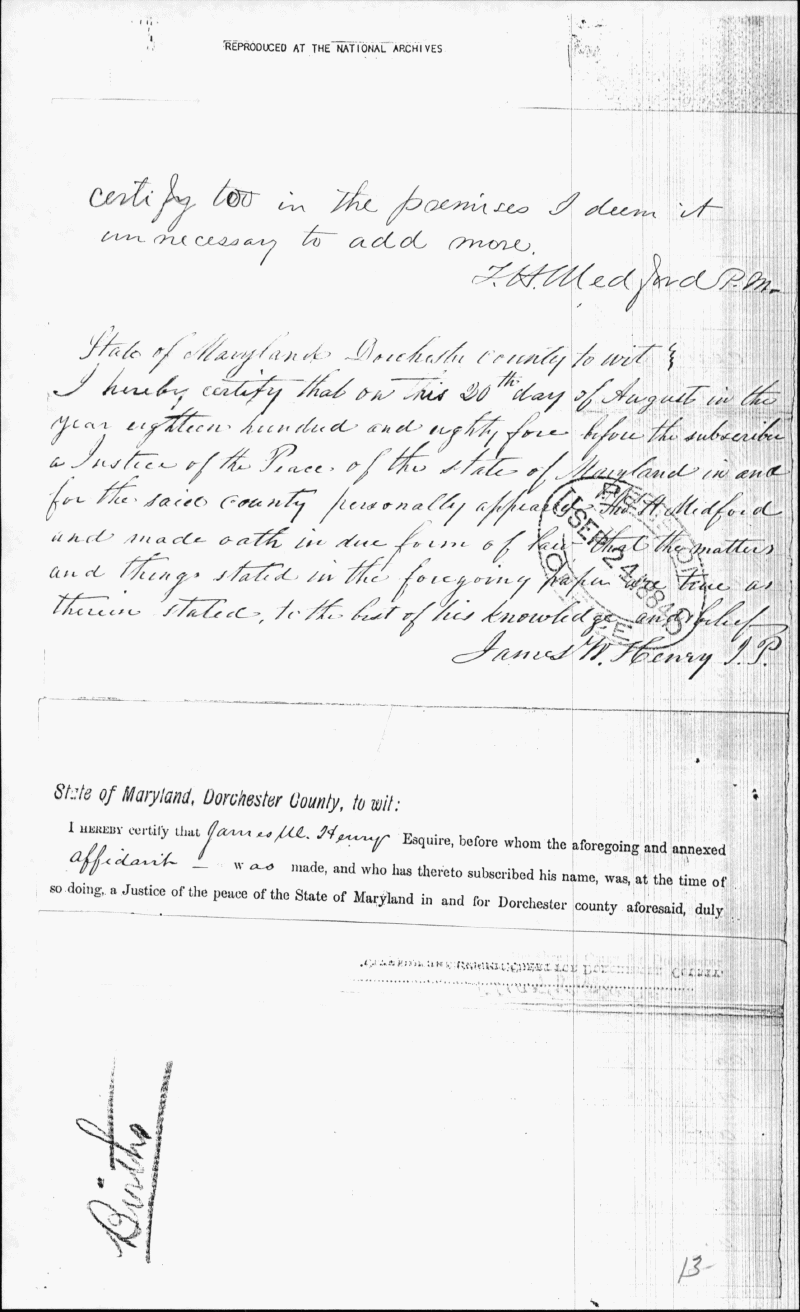 REPRODUCED AT THE NATIONAL ARCHIVES
certify too in the premises I deem it
unnecessary to add more.
T. H. Medford P.M.
State of Maryland Dorchester county to wit
I hereby certify that on this 20th day of August in the
year eighteen hundred and eighty fore before the subscriber
a Justice of the Peace of the state of Maryland in and
for the said county personally appeared Thos H. Medford
and made oath in due form of law that the matters
and things stated in the foregoing paper are true as
therein stated, to the best of his knowledge and belief
James W. Henry J.P.
U.S. PENSION OFFICE
SEP 24 1884
State of Maryland, Dorchester County, to wit:
I HEREBY certify that James W. Henry Esquire, before whom the aforegoing and annexed
affidavit — was made, and who has thereto subscribed his name, was, at the time of
so doing, a Justice of the peace of the State of Maryland in and for Dorchester county aforesaid, duly
Births
13